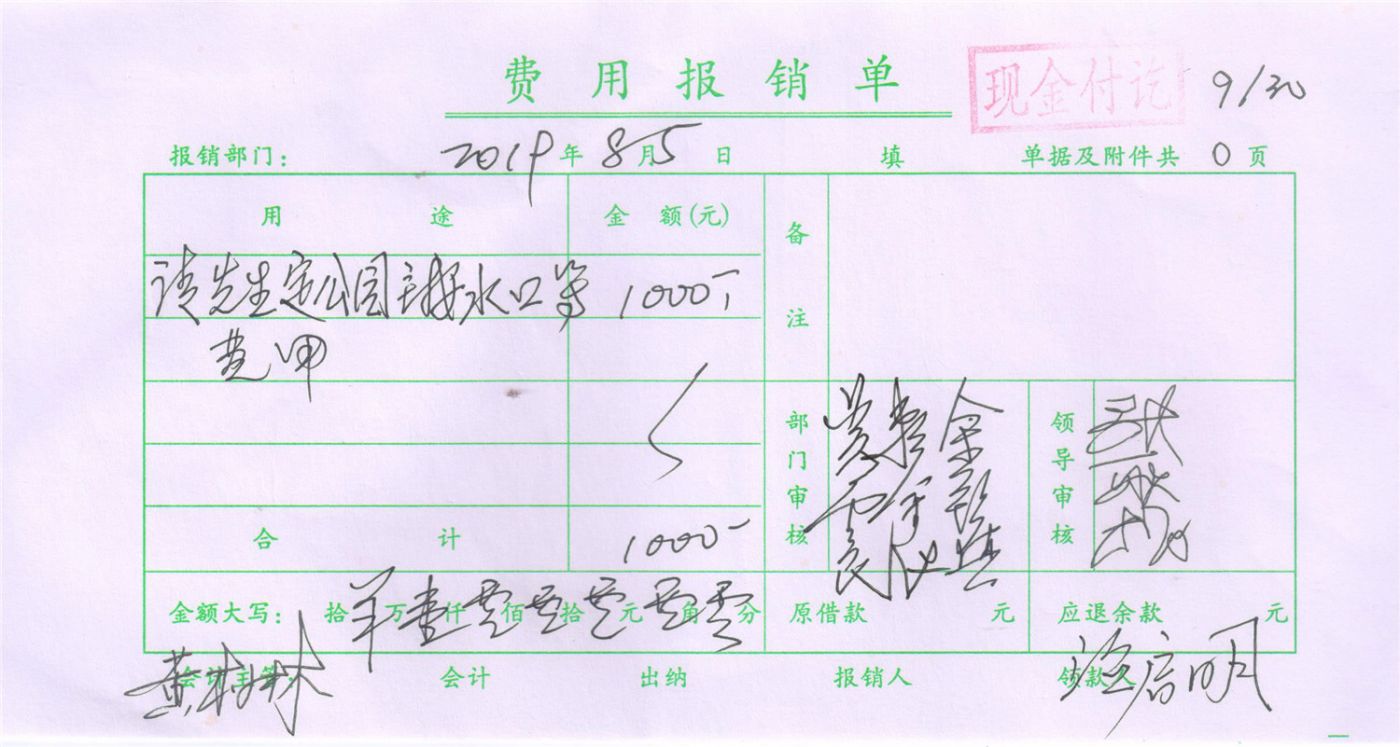 费用报销单
现金付讫 9/30
报销部门: 2019年8月5日 填 单据及附件共 0 页
用途 金额(元) 备注
请先生定公园主接水口等 1000-
部门审核 领导审核
合计 1000-
金额大写: 拾 万壹仟零佰零拾零元零角零分 原借款 元 应退余款 元
会计主管: 会计 出纳 报销人 领款人
黄树林